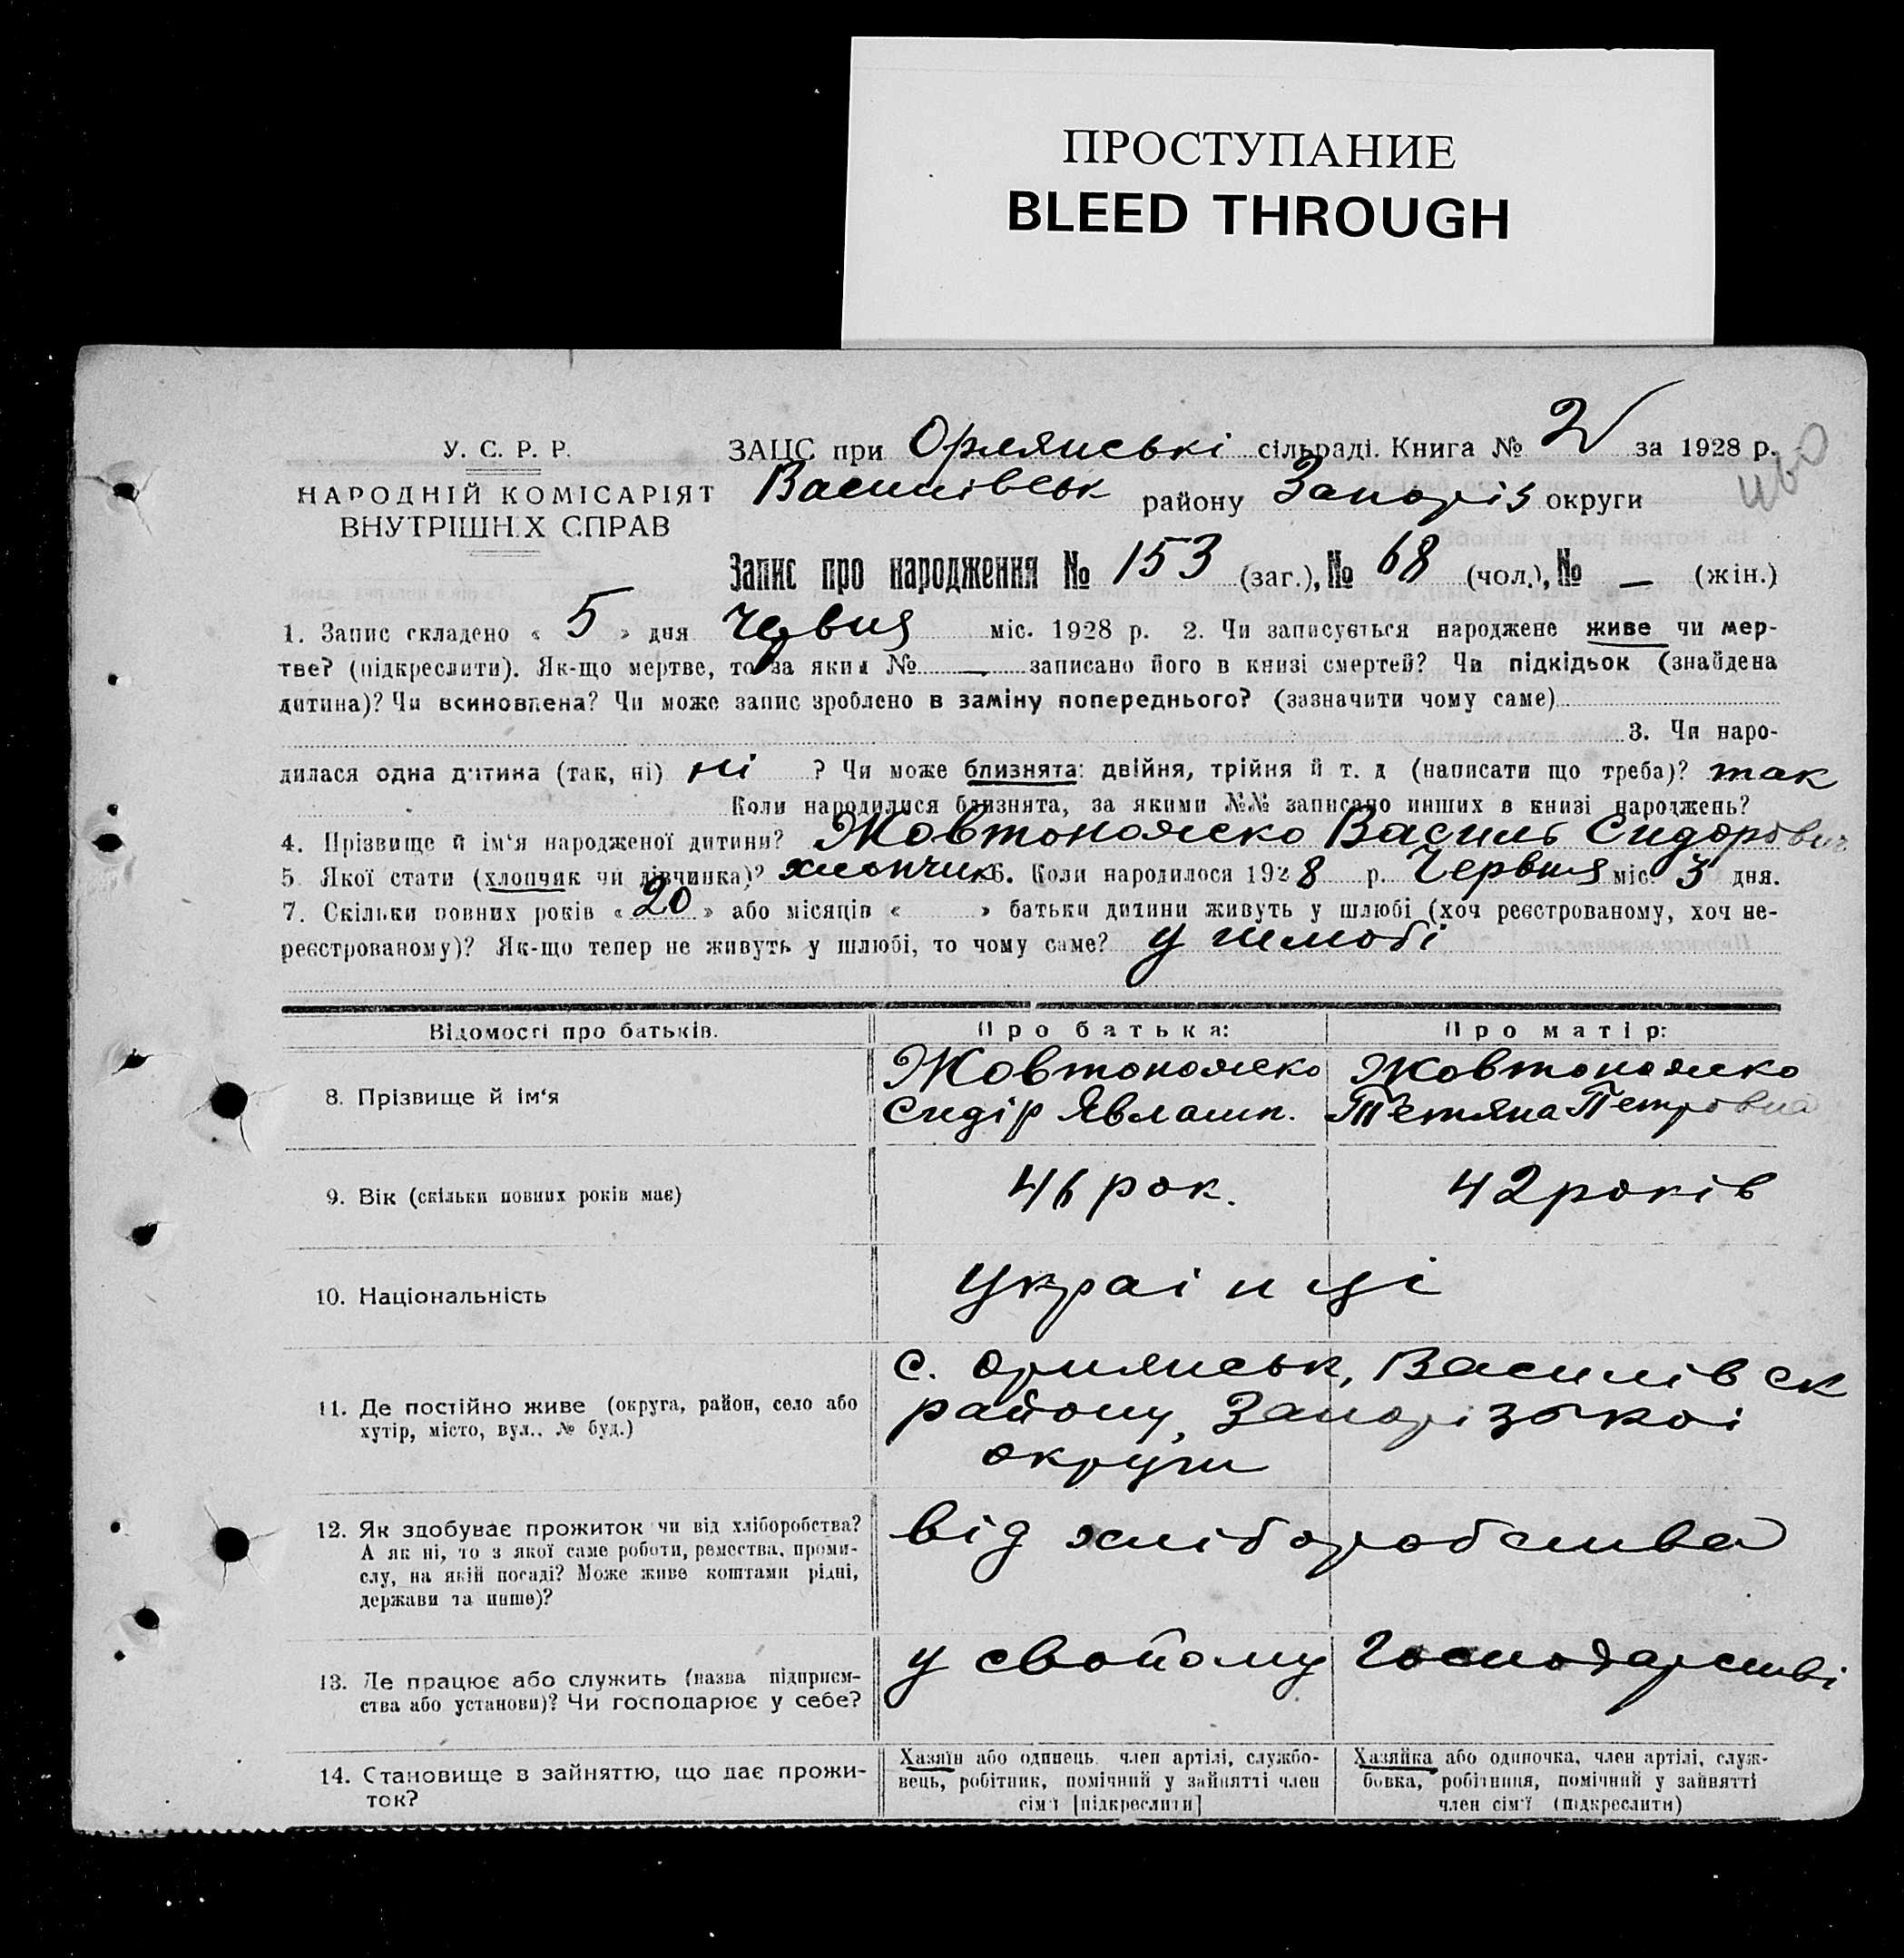 ПРОСТУПАНИЕ
BLEED THROUGH
У. С. Р. Р.
НАРОДНІЙ КОМІСАРІЯТ
ВНУТРІШН.Х СПРАВ
ЗАЦС при Орлянські сільраді. Книга № 2 за 1928 р.
Василівськ району Запоріз округи
Запис про народження № 153 (заг.), № 68 (чол.), № — (жін.)
1. Запис складено « 5 » дня червня міс. 1928 р. 2. Чи записується народжене живе чи мер-
тве? (підкреслити). Як-що мертве, то за яким № — записано його в книзі смертей? Чи підкідьок (знайдена
дитина)? Чи всиновлена? Чи може запис зроблено в заміну попереднього? (зазначити чому саме)
3. Чи наро-
дилася одна дитина (так, ні) ні ? Чи може близнята: двійня, трійня й т. д (написати що треба)? так
Коли народилися близнята, за якими №№ записано инших в книзі народжень?
4. Прізвище й ім‘я народженої дитини? Жовтоножко Василь Сидорович
5 Якої стати (хлопчик чи дівчинка)? хлопчик 6. Коли народилося 1928 р. Червня міс. 3 дня.
7. Скільки повних років « 20 » або місяців « » батьки дитини живуть у шлюбі (хоч реєстрованому, хоч не-
реєстрованому)? Як-що тепер не живуть у шлюбі, то чому саме? у шлюбі
Відомості про батьків. Про батька: Про матір:
8. Прізвище й ім‘я
Жовтоножко Жовтоножко
Сидір Тетяна Петровна
9. Вік (скільки повних років має) 46 рок. 42 років
10. Національність Украінці
11. Де постійно живе (округа, район, село або
хутір, місто, вул.. № буд.)
с. Орлянськ, Василівск
району, Запорізькоі
округи
12. Як здобуває прожиток чи від хліборобства?
А як ні, то з якої саме роботи, ремества, проми-
слу, на якій посаді? Може живе коштами рідні,
держави та инше)?
від хліборобства
13. Де працює або служить (назва підприєм-
ства або установи)? Чи господарює у себе?
у свойому господарстві
14. Становище в зайняттю, що дає прожи-
ток?
Хазяїн або одинець член артілі, службо-
вець, робітник, помічний у зайнятті член
сім‘ї [підкреслити]
Хазяйка або одиночка, член артілі, служ-
бовка, робітниця, помічний у зайнятті
член сім‘ї (підкреслити)